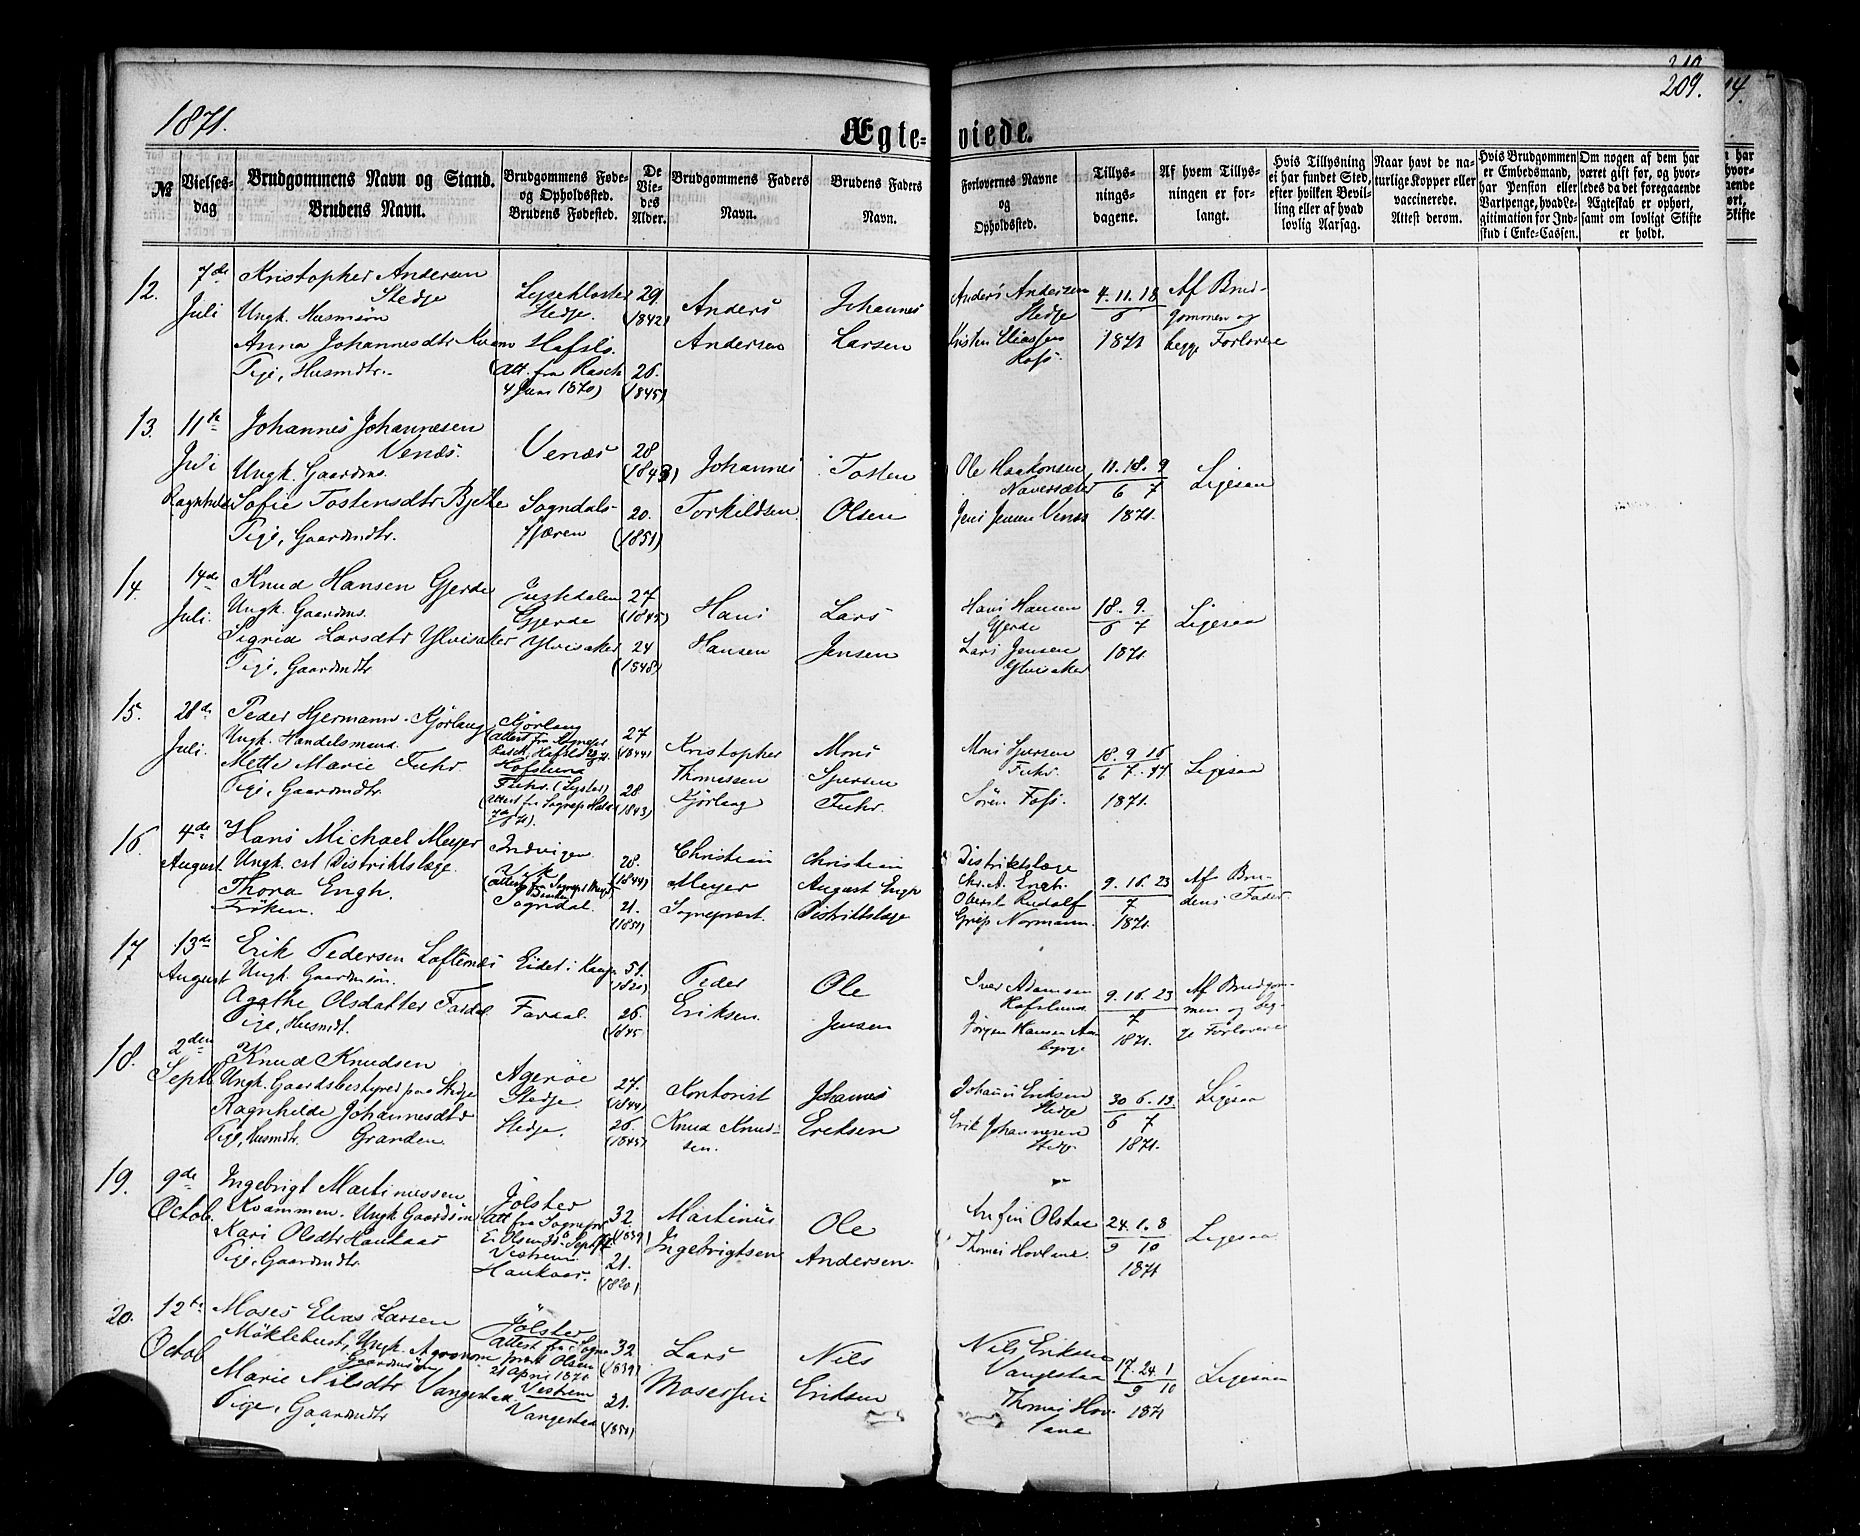 1871.
209.
Ægte-viede.
№
Vielses-dag
Brudgommens Navn og Stand.
Brudens Navn.
Brudgommens Føde- og Opholdssted.
Brudens Fødested.
De Viedes Alder.
Brudgommens Faders Navn.
Brudens Faders Navn.
Forlovernes Navne og Opholdssted.
Tillysningsdagene.
Af hvem Tillysningen er forlangt.
Hvis Tillysning ei har fundet Sted, efter hvilken Bevilling eller af hvad lovlig Aarsag.
Naar havt de naturlige Kopper eller vaccinerede. Attest derom.
Hvis Brudgommen er Embedsmand, har Pension eller Vartpenge, hvad Legitimation for Indskud i Enke-Cassen.
Om nogen af dem har været gift før, og hvorledes da det foregaaende Ægteskab er ophørt, samt om lovligt Skifte er holdt.
12.
7de Juli
Kristopher Andersen
Stedje
Ungk. Husmsøn
Anna Johannesdtr Kvam
Pige, Husmdtr.
Stedje.
Hafslo.
(Att. fra Rasch
4 Juni 1870)
29.
(1842)
26.
(1845)
Anders
Andersen
Johannes
Larsen
Anders Andersen
Stedje
Kristen Eliassen
4. 11. 18
6
1871
Af Brud-
gommen og
begge Forlovere
13.
11te Juli
Johannes Johannesen
Venæs.
Ungk. Gaardms.
Ragnhilde Sofie Tostensdtr Bjelke
Pige, Gaardmdtr.
Venæs
Sogndals-
fjæren
28
(1843)
20.
(1851)
Johannes
Torkildsen
Tosten
Olsen
Ole Haakonsen
Navarsæter
Jens Jensen Venæs
11. 18. 9
6 7
1871.
Ligesaa
14.
14de Juli.
Knud Hansen Gjerde
Ungk. Gaardms.
Sigrid Larsdtr Ylvisaker
Pige, Gaardmdtr
Justedalen
Gjerde
Ylvisaker
27
(1845)
24
(1848)
Hans
Hansen
Lars
Jensen
Hans Hansen
Gjerde
Lars Jensen
Ylvisaker
18. 9.
6 7
1871
Ligesaa
15.
28de Juli.
Peder Hjermann Kjørlaug
Ungk. Handelsmand.
Mette Marie Fuhr.
Pige, Gaardmdtr.
Kjørlaug
Hofslund
Fuhr. (Lyster)
27
(1844)
28
(1843)
Kristopher
Thomessen
Kjørlaug
Mons
Sjursen
Fuhr
Mons Sjursen
Fuhr.
Sören Foss.
18. 9. 16
6 7.
1871.
Ligesaa
16.
4de August
Hans Michael Meyer
Ungk. cst Distriktslæge.
Thora Engh.
Frøken.
Indvigen
Sogndal.
28.
(1844)
21.
(1851)
Christian
Meyer
Sogneprest.
Christian
August Engh
Distriktslæge
Distriktslæge
Chr. A. Engh.
Oberst Rudolf
Grip Normann.
9. 16. 23
7
1871.
Af Bru-
dens Fader
17
13de August
Erik Pedersen Loftenæs
Ungk. Gaardmsøn.
Agathe Olsdatter Fardal
Pige, Husmdt.
Fardal.
51.
(1820)
26.
(1845
Peder
Eriksen.
Ole
Jensen
Iver Adamsen
Hofslund.
Jörgen Hansen Aa-
berge
9. 16. 23
7
1871.
Af Brudgom-
men og beg-
ge Forlovere
18.
2den Septb.
Knud Knudsen
Ungk. Gaardsbestyrer paa Stedje
Ragnhilde Johannesdtr
Pige, Husmdtr. Granden.
Agerøe
Stedje.
Stedje.
27.
(1844)
26.
(1845)
Kontorist
Knud Knud-
sen.
Johannes
Eriksen
Johannes Eriksen
Stedje
Erik Johannesen
Stedje.
30 6. 13
6 7
1871.
Ligesaa
19.
9de Octob.
Ingebrigt Martinussen
Kvammen. Ungk. Gaardsøn
Kari Olsdtr Haukaas
Pige, Gaardmdtr.
Jölster
Vestrem
Haukaas.
32
(1839)
21.
Martinus
Ingebrigtsen
Ole
Andersen.
Anfin Olstad
Thomas Hovland.
24. 1. 8
9 10
1871
Ligesaa
20.
12te Octob
Moses Elias Larsen
Möklebust, Ungk. Agronom
Gaardmsøn
Marie Nilsdtr Vangestad
Pige, Gaardmdtr
Jölster
Attest fra Sogne
prest Olsen
21 April 1870
Vestrem
Vangestad
32
(1839)
21.
(1850)
Lars
Mosessen
Nils
Eriksen
Nils Eriksen
Vangestad
Thomas Hov-
land
17. 24. 1
9 10
1871
Ligesaa